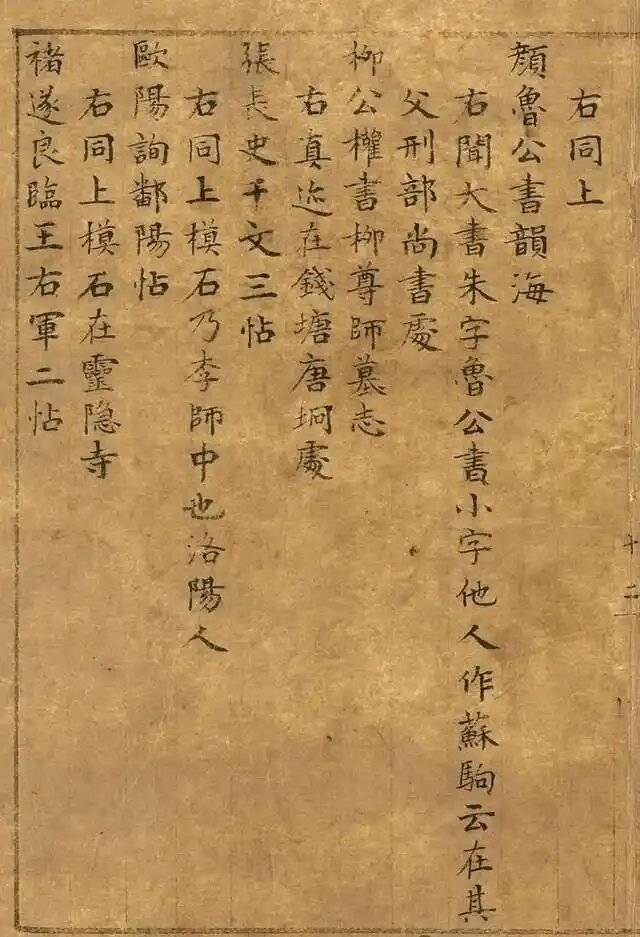 右同上
顔魯公書韻海
右聞大書朱字魯公書小字他人作蘇駒云在其
父刑部尚書處
柳公權書柳尊師墓志
右真迹在錢塘唐坰處
張長史千文三帖
右同上模石乃李師中也洛陽人
歐陽詢鄱陽帖
右同上模石在靈隐寺
褚遂良臨王右軍二帖
十二